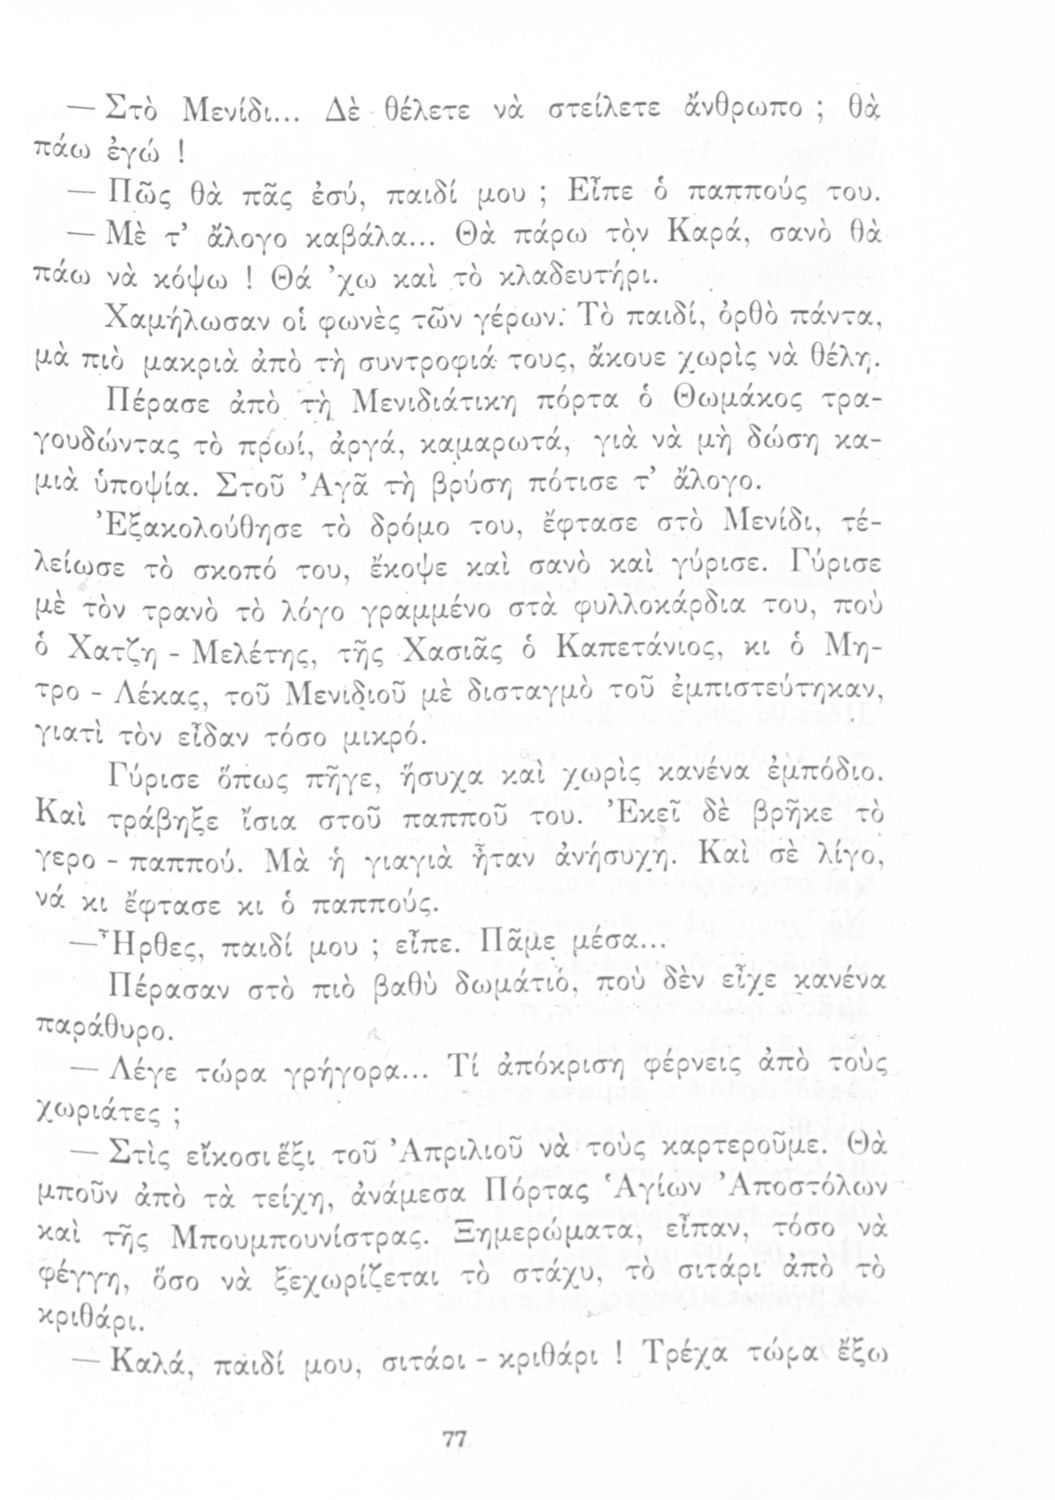 — Στὸ Μενίδι... Δὲ θέλετε νὰ στείλετε ἄνθρωπο ; θὰ
πάω ἐγώ !
— Πῶς θὰ πᾶς ἐσύ, παιδί μου ; Εἶπε ὁ παππούς του.
— Μὲ τ’ ἄλογο καβάλα... Θὰ πάρω τὸν Καρά, σανὸ θὰ
πάω νὰ κόψω ! Θά ’χω καὶ τὸ κλαδευτήρι.
Χαμήλωσαν οἱ φωνὲς τῶν γέρων. Τὸ παιδί, ὀρθὸ πάντα,
μὰ πιὸ μακριὰ ἀπὸ τὴ συντροφιά τους, ἄκουε χωρὶς νὰ θέλη.
Πέρασε ἀπὸ τὴ Μενιδιάτικη πόρτα ὁ Θωμάκος τρα-
γουδώντας τὸ πρωί, ἀργά, καμαρωτά, γιὰ νὰ μὴ δώση κα-
μιὰ ὑποψία. Στοῦ ’Αγᾶ τὴ βρύση πότισε τ’ ἄλογο.
’Εξακολούθησε τὸ δρόμο του, ἔφτασε στὸ Μενίδι, τέ-
λείωσε τὸ σκοπό του, ἔκοψε καὶ σανὸ καὶ γύρισε. Γύρισε
μὲ τὸν τρανὸ τὸ λόγο γραμμένο στὰ φυλλοκάρδια του, ποὺ
ὁ Χατζη - Μελέτης, τῆς Χασιᾶς ὁ Καπετάνιος, κι ὁ Μη-
τρο - Λέκας, τοῦ Μενιδιοῦ μὲ δισταγμὸ τοῦ ἐμπιστεύτηκαν,
γιατὶ τὸν εἶδαν τόσο μικρό.
Γύρισε ὅπως πῆγε, ἥσυχα καὶ χωρὶς κανένα ἐμπόδιο.
Καὶ τράβηξε ἴσια στοῦ παπποῦ του. ’Εκεῖ δὲ βρῆκε τὸ
γερο - παππού. Μὰ ἡ γιαγιὰ ἦταν ἀνήσυχη. Καὶ σὲ λίγο,
νά κι ἔφτασε κι ὁ παππούς.
—῏Ηρθες, παιδί μου ; εἶπε. Πᾶμε μέσα...
Πέρασαν στὸ πιὸ βαθὺ δωμάτιό, ποὺ δὲν εἶχε κανένα
παράθυρο.
— Λέγε τώρα γρήγορα... Τί ἀπόκριση φέρνεις ἀπὸ τοὺς
χωριάτες ;
— Στὶς εἴκοσι ἕξι τοῦ ’Απριλιοῦ νὰ τοὺς καρτεροῦμε. Θὰ
μποῦν ἀπὸ τὰ τείχη, ἀνάμεσα Πόρτας ‘Αγίων ’Αποστόλων
καὶ τῆς Μπουμπουνίστρας. Ξημερώματα, εἶπαν, τόσο νὰ
φέγγη, ὅσο νὰ ξεχωρίζεται τὸ στάχυ, τὸ σιτάρι ἀπὸ τὸ
κριθάρι.
— Καλά, παιδί μου, σιτάρι - κριθάρι ! Τρέχα τώρα ἔξω
77